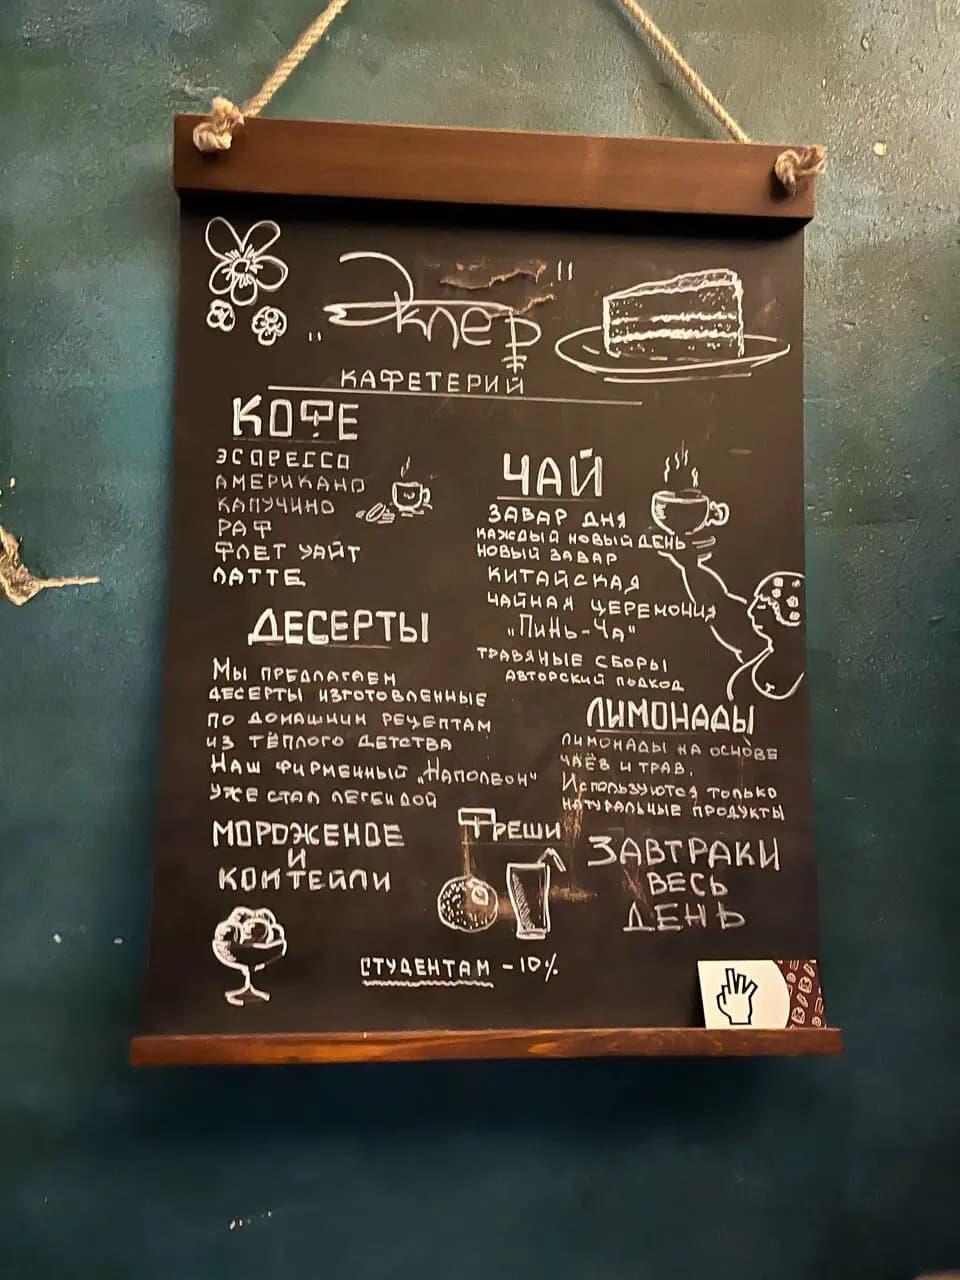 „Эклер"
КАФЕТЕРИЙ
КОФЕ
ЭСПРЕССО
АМЕРИКАНО
КАПУЧИНО
РАФ
ФЛЕТ УАЙТ
ЛАТТЕ
ЧАЙ
ЗАВАР ДНЯ
КАЖДЫЙ НОВЫЙ ДЕНЬ
НОВЫЙ ЗАВАР
КИТАЙСКАЯ
ЧАЙНАЯ ЦЕРЕМОНИЯ
„ПИНЬ-ЧА"
ТРАВЯНЫЕ СБОРЫ
АВТОРСКИЙ ПОДХОД
ДЕСЕРТЫ
Мы ПРЕДЛАГАЕМ
ДЕСЕРТЫ ИЗГОТОВЛЕННЫЕ
ПО ДОМАШНИМ РЕЦЕПТАМ
ИЗ ТЁПЛОГО ДЕТСТВА
НАШ ФИРМЕННЫЙ „НАПОЛЕОН"
УЖЕ СТАЛ ЛЕГЕНДОЙ
ЛИМОНАДЫ
ЛИМОНАДЫ НА ОСНОВЕ
ЧАЁВ И ТРАВ.
ИСПОЛЬЗУЮТСЯ ТОЛЬКО
НАТУРАЛЬНЫЕ ПРОДУКТЫ
МОРОЖЕНОЕ
И
КОКТЕЙЛИ
ФРЕШИ
ЗАВТРАКИ
ВЕСЬ
ДЕНЬ
СТУДЕНТАМ -10%